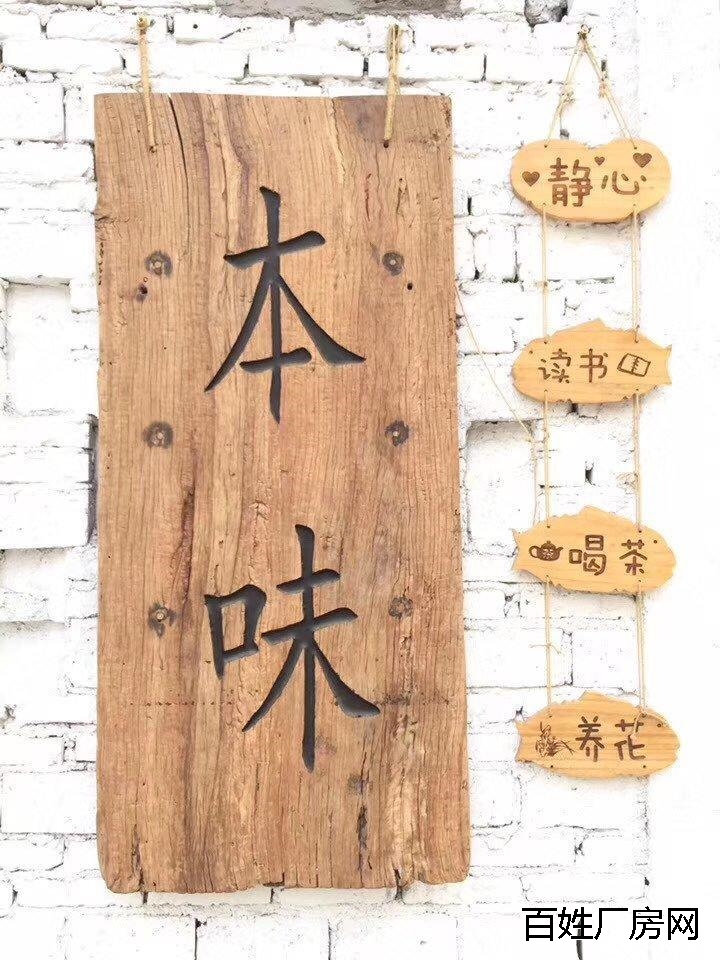 本
味
静心
读书
喝茶
养花
百姓厂房网